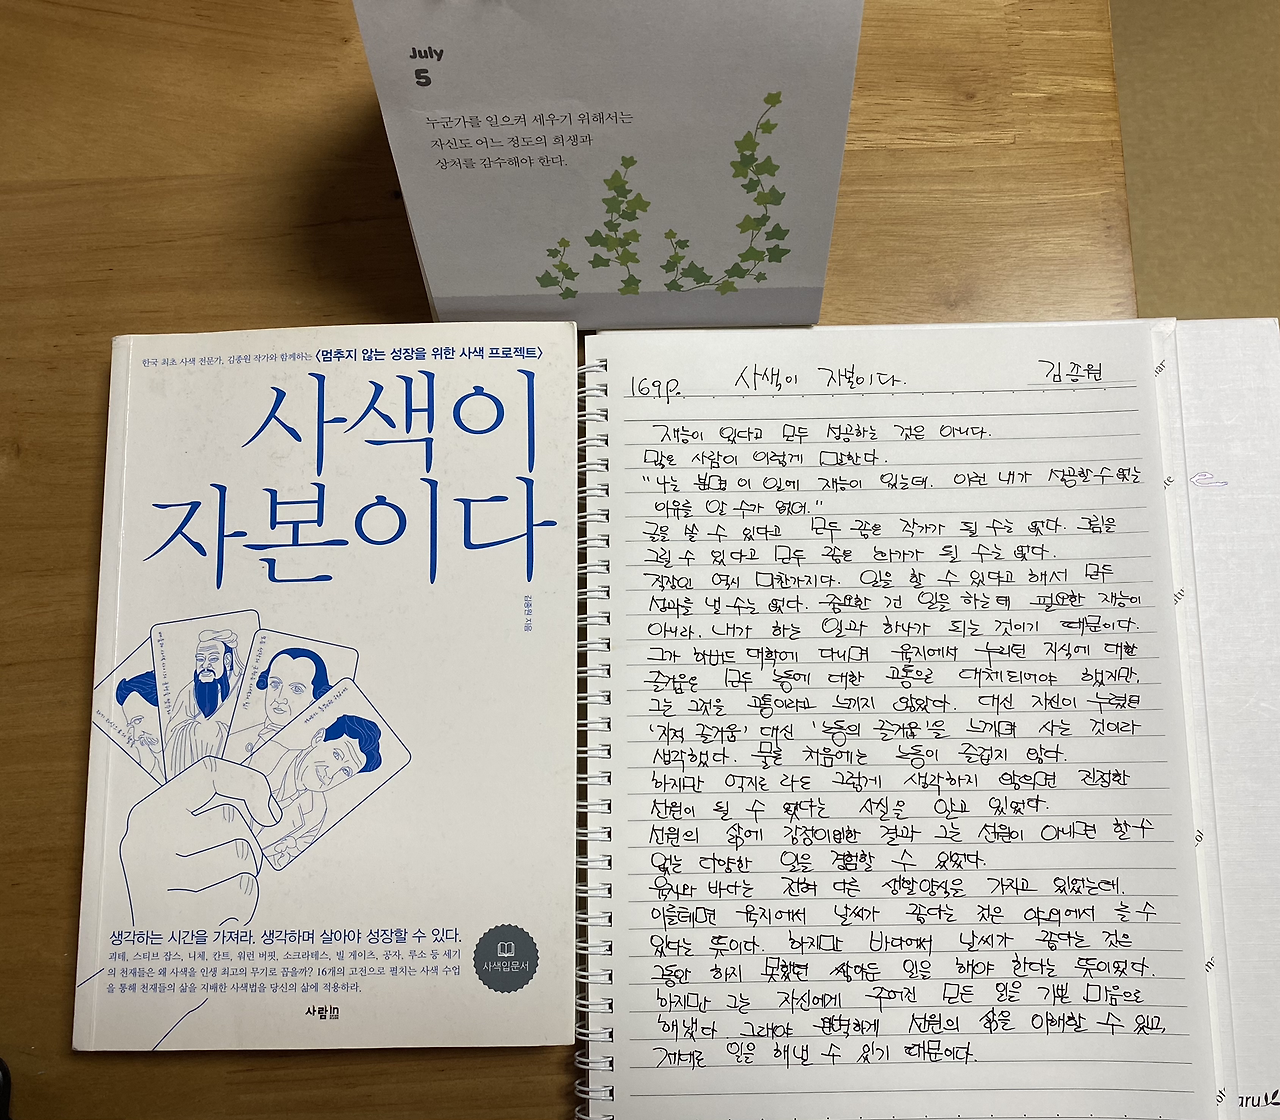 July
5
누군가를 일으켜 세우기 위해서는
자신도 어느 정도의 희생과
상처를 감수해야 한다.
한국 최초 사색 전문가, 김종원 작가와 함께하는 〈멈추지 않는 성장을 위한 사색 프로젝트〉
사색이
자본이다
김종원 지음
생각하는 시간을 가져라, 생각하며 살아야 성장할 수 있다.
괴테, 스티브 잡스, 니체, 칸트, 워런 버핏, 소크라테스, 빌 게이츠, 공자, 루소 등 세기
의 천재들은 왜 사색을 인생 최고의 무기로 꼽을까? 16개의 고전으로 펼치는 사색 수업
을 통해 천재들의 삶을 지배한 사색법을 당신의 삶에 적용하라.
사색입문서
사람in
169p. 사색이 자본이다. 김종원
재능이 있다고 모두 성공하는 것은 아니다.
많은 사람이 이렇게 말한다.
"나는 분명 이 일에 재능이 있는데. 이런 내가 성공할 수 없는
이유를 알 수가 없어."
글을 쓸 수 있다고 모두 좋은 작가가 될 수는 없다. 그림을
그릴 수 있다고 모두 좋은 화가가 될 수는 없다.
직장인 역시 마찬가지다. 일을 할 수 있다고 해서 모두
성과를 낼 수는 없다. 중요한 건 일을 하는데 필요한 재능이
아니라, 내가 하는 일과 하나가 되는 것이기 때문이다.
그가 하버드 대학에 다니며 육지에서 누리던 지식에 대한
즐거움은 모두 노동에 대한 고통으로 대체되어야 했지만,
그는 그것을 고통이라고 느끼지 않았다. 대신 자신이 누렸던
'지적 즐거움' 대신 '노동의 즐거움'을 느끼며 사는 것이라
생각했다. 물론 처음에는 노동이 즐겁지 않다.
하지만 억지로라도 그렇게 생각하지 않으면 진정한
선원이 될 수 없다는 사실을 알고 있었다.
선원의 삶에 감정이입한 결과 그는 선원이 아니면 할 수
없는 다양한 일을 경험할 수 있었다.
육지와 바다는 전혀 다른 생활양식을 가지고 있었는데,
이를테면 육지에서 날씨가 좋다는 것은 야외에서 놀 수
있다는 뜻이다. 하지만 바다에서 날씨가 좋다는 것은
그동안 하지 못했던 쌓아둔 일을 해야 한다는 뜻이었다.
하지만 그는 자신에게 주어진 모든 일을 기쁜 마음으로
해냈다. 그래야 완벽하게 선원의 삶을 이해할 수 있고,
제대로 일을 해낼 수 있기 때문이다.